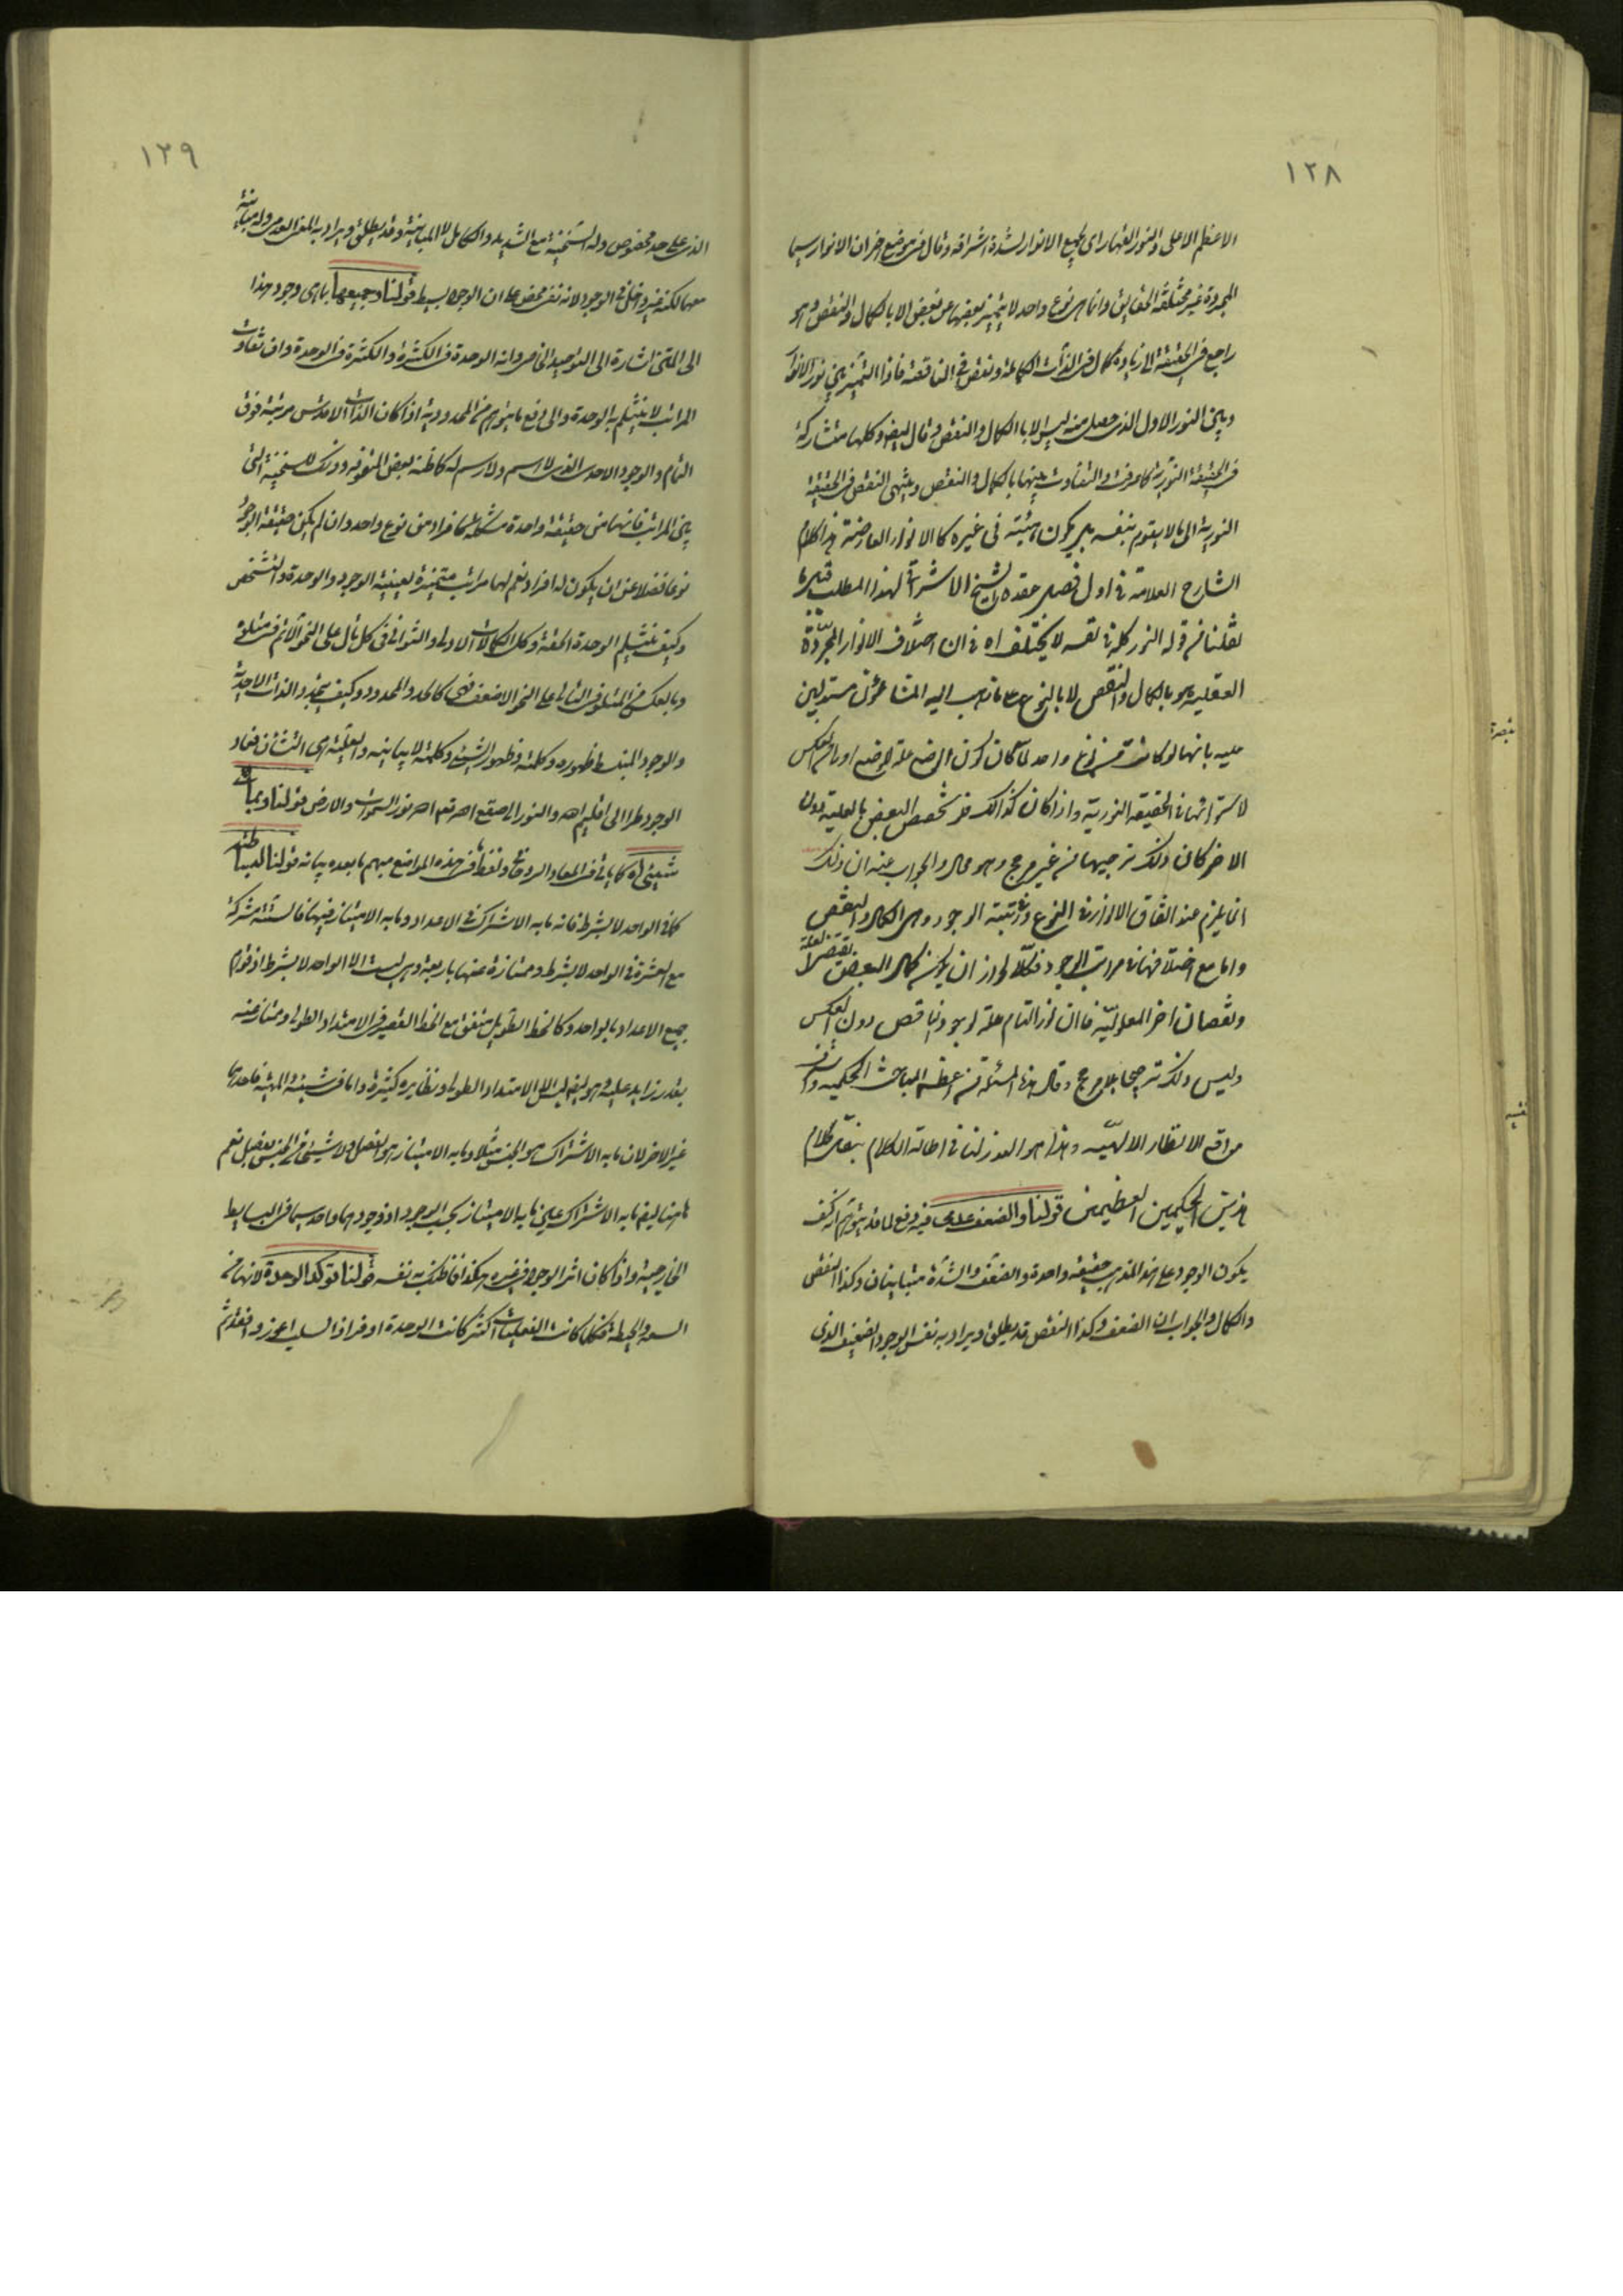 ١٢٨
الاعظم الاعلى والنور القهار اى لجميع الانوار لشدة اشراقه وقال فى موضع اخر ان الانوار سيما
المجردة غير مختلفة الحقايق وانما هى نوع واحد لا يتميز بعضها عن بعض الا بالكمال والنقص وهو
راجع فى الحقيقة الى زيادة كمال فى الذات الكاملة ونقص فى الناقصة فاذا التميز بين نور الانوار
وبين النور الاول الذى حصل منه ليس الا بالكمال والنقص وقال ايضا وكلها متشاركة
فى الحقيقة النورية كما عرفت والتفاوت بينها بالكمال والنقص وينتهى النقص فى الحقيقة
النورية الى ما لا يقوم بنفسه بل يكون هيئة فى غيره كالانوار العارضة هذا كلام
الشارح العلامة فى اول فصل عقده الشيخ الاشراقى لهذا المطلب قبل ما
نقلنا من قوله النور كله فى نفسه لا يختلف اه فى ان اختلاف الانوار المجردة
العقلية هو بالكمال والنقص لا بالنوع كما ذهب اليه المشاؤن مستدلين
عليه بانها لو كانت من نوع واحد لما كان كون البعض علة للبعض اولى من العكس
لاستوائها فى الحقيقة النورية واذا كان كذالك فتخصص البعض بالعلية دون
الاخر كان ذلك ترجيحا من غير مرجح وهو محال والجواب عنه ان ذلك
انما يلزم عند اتفاق الانوار فى النوع ورتبة الوجود وهى الكمال والنقص
واما مع اختلافها فى مراتب الوجود فكلا لجواز ان يكون كمال البعض يقتضى العلة
ونقصان اخر المعلولية فان النور التام علة لوجود الناقص دون العكس
وليس ذلك ترجيحا بلا مرجح وقال هذه المسئلة من اعظم المباحث الحكمية واشرف
مواقع الانظار الالهية وهذا هو العذر لنا فى اطالة الكلام بنقل كلام
هذين الحكيمين العظيمين قولنا والضعف عدمى فيه دفع لما قد يتوهم انه كيف
يكون الوجود على هذا المذهب حقيقة واحدة والضعف والشدة متباينان وكذا النقص
والكمال والجواب ان الضعف وكذا النقص قد يطلق ويراد به نفس الوجود الضعيف الذى
١٢٩
الذى على حد مخصوص وله السنخية مع الشديد والكامل لا المباينة وقد يطلق ويراد به المعنى العدمى وله مباينة
معها لكنه غير داخل فى الوجود لانه نفى محض كما ان الوجود بسيط قولنا وجميعها بما هى وجود هذا
الى المتن اشارة الى التوحيد الخاصى وانه الوحدة فى الكثرة والكثرة فى الوحدة وان تفاوت
المراتب لا ينثلم به الوحدة والى دفع ما يتوهم من المحدودية اذا كان الذات الاقدس مرتبة فوق
التمام والوجود الاحدى الذى لا اسم ولا رسم له كما ظنه بعض المتصوفة وذلك للسنخية التى
بين المراتب فانها من حقيقة واحدة مشككة كافراد من نوع واحد وان لم يكن حقيقة الوجود
نوعا فضلا عن ان يكون له افراد نعم لها مراتب متميزة بعينية الوجود والوحدة والتشخص
وكيف ينثلم الوحدة الحقة وكل الكمالات الاولى والثوانى فى كل تال على النحو الاتم فى متلوه
وبالعكس من المتلو فى التالى على النحو الاضعف فهى كالحد والمحدود وكيف يتحدد الذات الاحدية
والوجود المنبسط ظهوره وكلمته وظهور الشىء وكلمته لا يباينه والعلية هى التشأن فعاد
الوجود طرا الى اقليم الله والنور الى صقع الله نعم الله نور السموات والارض قولنا وبما
شيئى اه كما ياتى فى المعاد الروحانى ولفظ ما فى هذه المواضع مبهم ما بعده بيانه قولنا البسائط
كما فى الواحد لا بشرط فانه ما به الاشتراك فى الاعداد وما به الامتياز فيها فالستة مشتركة
مع العشرة فى الواحد لا بشرط وممتازة عنها باربعة وهى ليست الا الواحد لا بشرط اذ قوام
جميع الاعداد بالواحد وكالخط الطويل متفق مع الخط القصير فى الامتداد الطولى وممتاز عنه
بقدر زايد عليه وهو ايضا ليس الا الامتداد الطولى ونظايره كثيرة واما فى شيئية المهية فاحدهما
غير الاخر لان ما به الاشتراك هو الجنس مثلا وما به الامتياز هو الفصل ولا شيئى من الجنس بفصل نعم
هاهنا ايضا ما به الاشتراك عين ما به الامتياز بحسب الوجود اذ وجودهما واحد سيما فى البسايط
الخارجية واذا كان اثر الوجود فى غيره هكذا فما ظنك به نفسه قولنا توكد الوحدة لانها من
السعة والحيطة فكلما كانت الفعليات اكثر كانت الوحدة اوفر اذ السلب اعوز والفقد اشذ